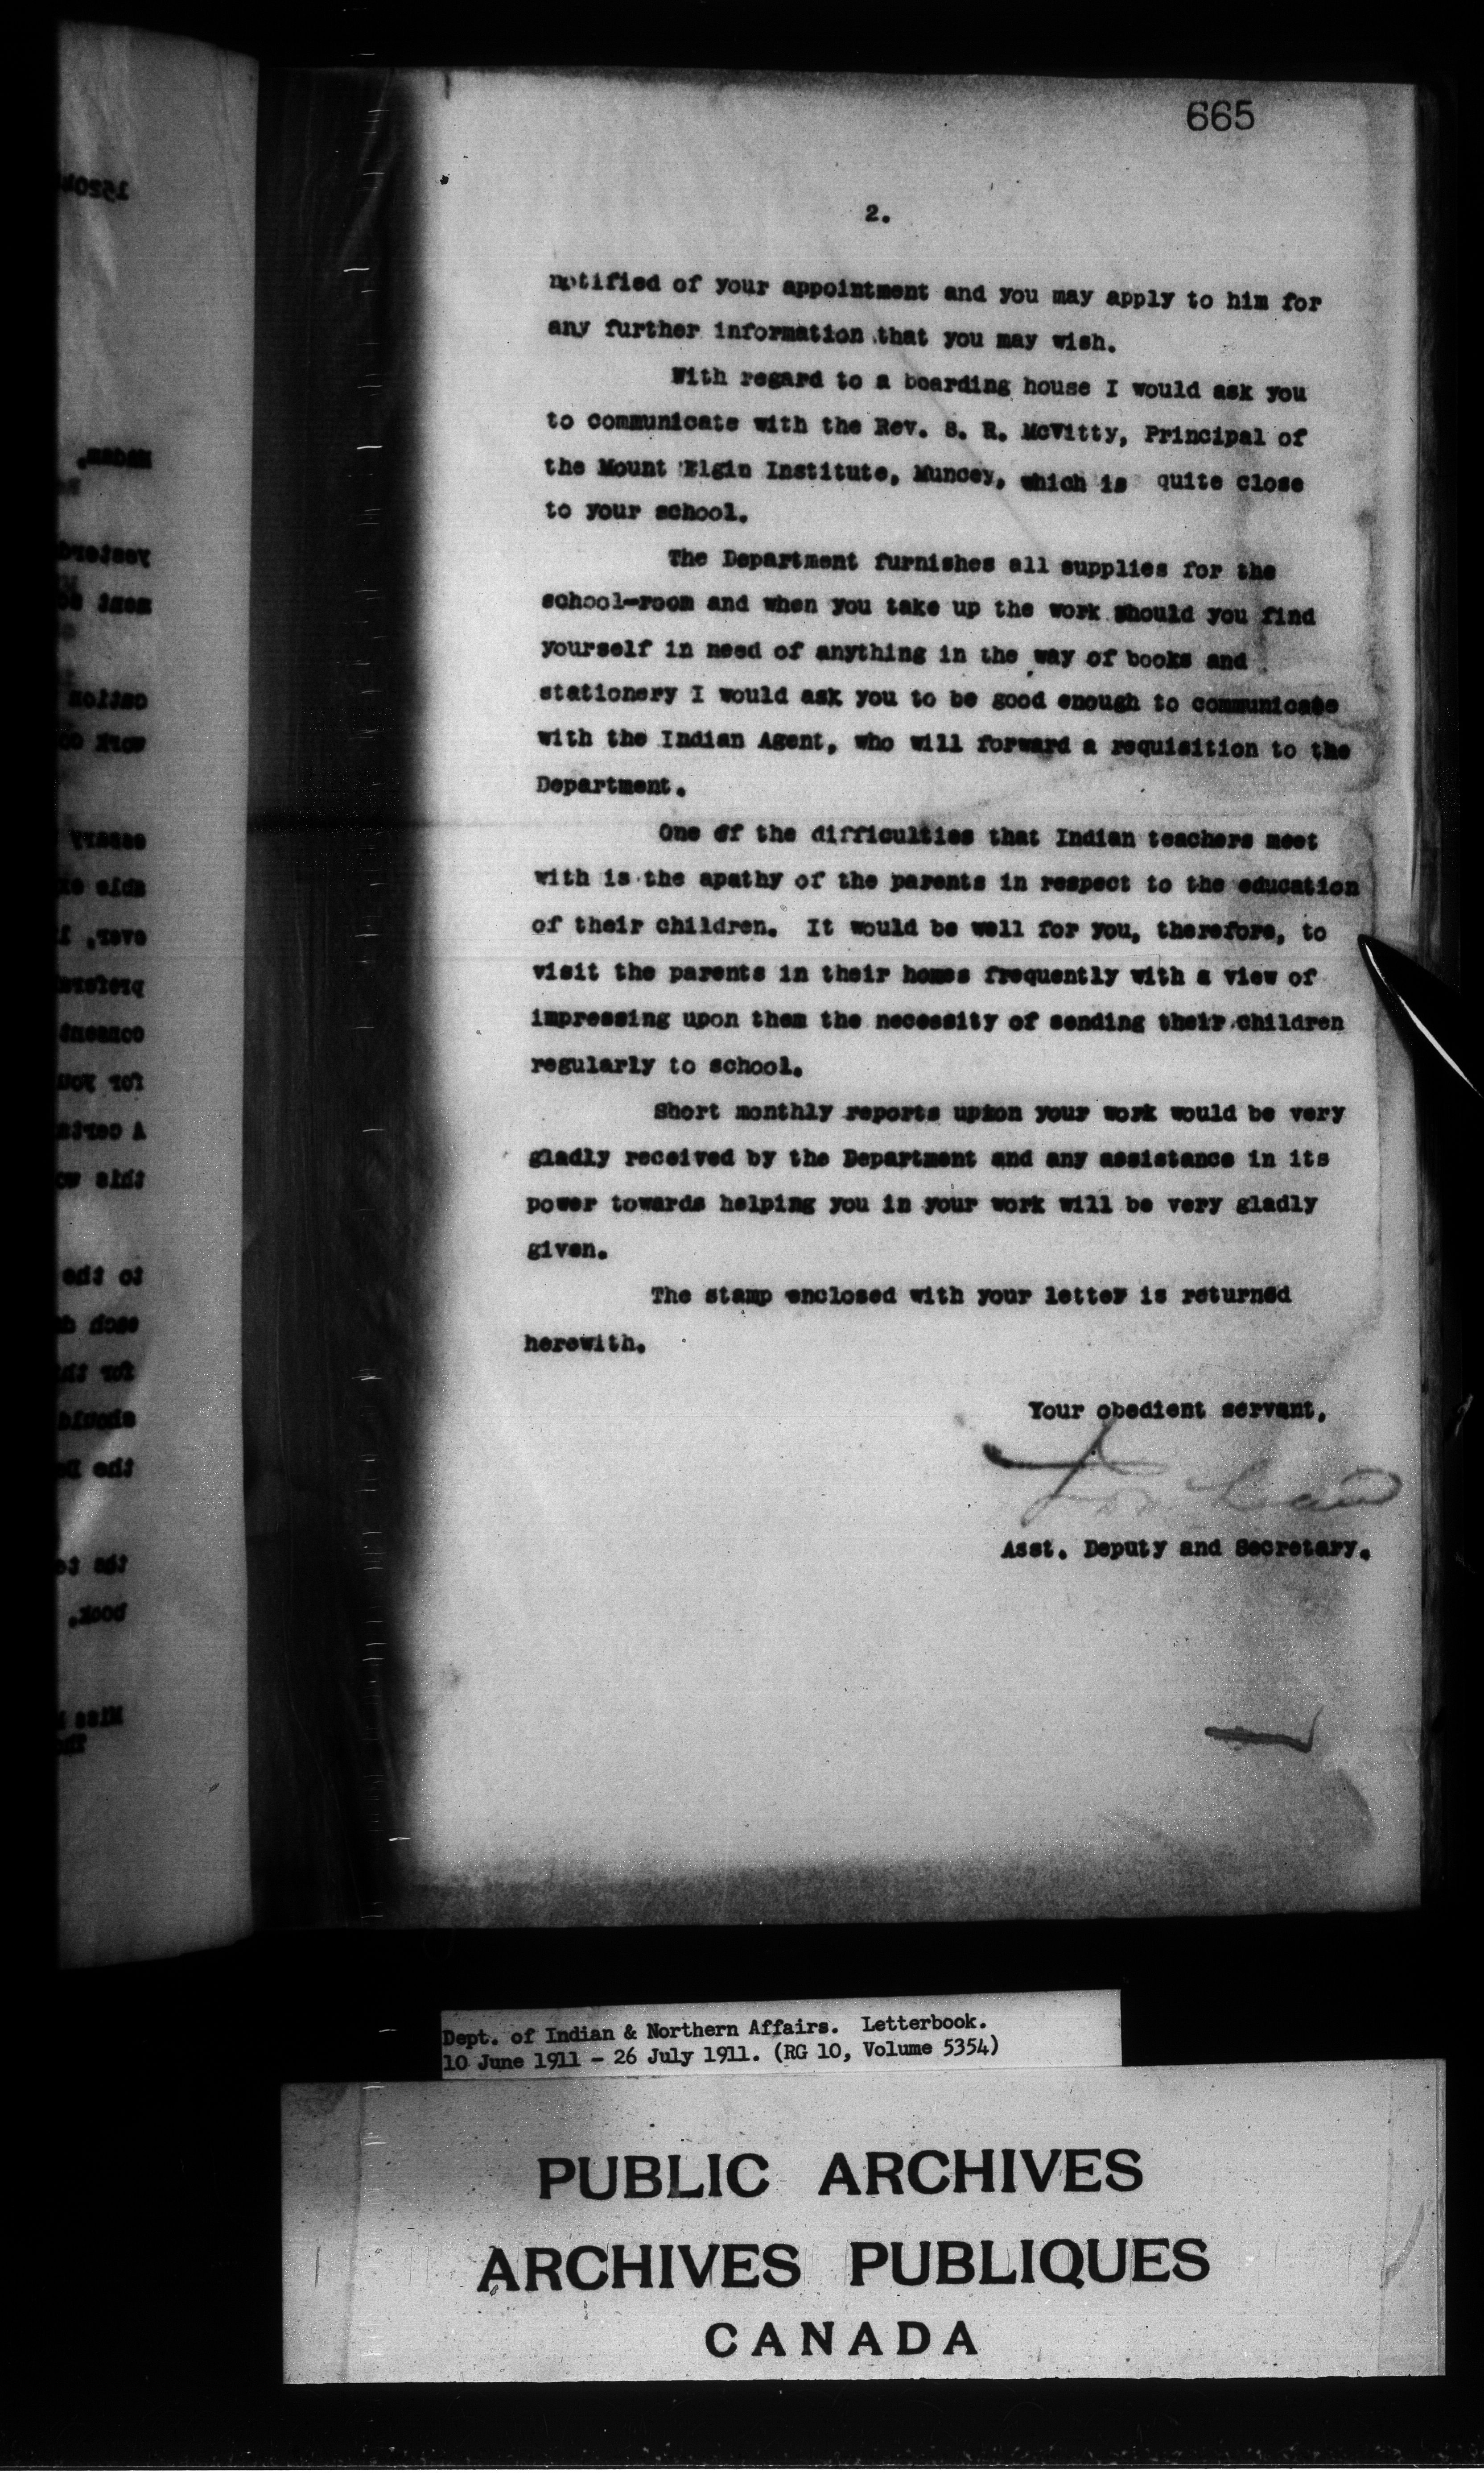 665
2.
notified of your appointment and you may apply to him for
any further information that you may wish.
With regard to a boarding house I would ask you
to communicate with the Rev. S. R. McVitty, Principal of
the Mount Elgin Institute, Muncey, which is quite close
to your school.
The Department furnishes all supplies for the
school-room and when you take up the work should you find
yourself in need of anything in the way of books and
stationery I would ask you to be good enough to communicate
with the Indian Agent, who will forward a requisition to the
Department.
One of the difficulties that Indian teachers meet
with is the apathy of the parents in respect to the education
of their children. It would be well for you, therefore, to
visit the parents in their homes frequently with a view of
impressing upon them the necessity of sending their children
regularly to school.
Short monthly reports upon your work would be very
gladly received by the Department and any assistance in its
power towards helping you in your work will be very gladly
given.
The stamp enclosed with your letter is returned
herewith.
Your obedient servant,
Asst. Deputy and Secretary.
Dept. of Indian & Northern Affairs. Letterbook.
10 June 1911 - 26 July 1911. (RG 10, Volume 5354)
PUBLIC ARCHIVES
ARCHIVES PUBLIQUES
CANADA